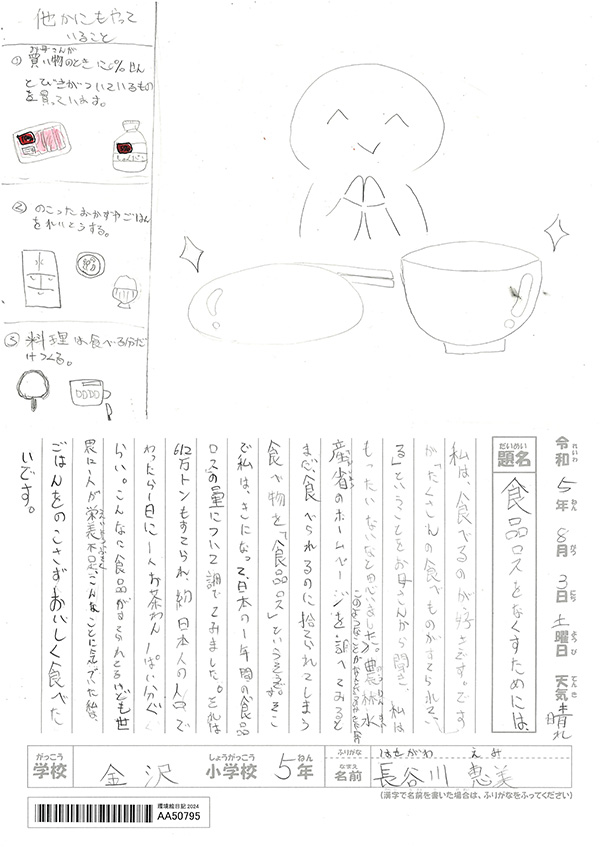 他かにもやって
いること
① お母さんが
買い物のとき
とびきがついているもの
を買っています。
しょんべん
② のこったおかずやごはん
をれいとうする。
③ 料理は食べる分だ
けつくる。
令和 5年 8月 3日 土曜日 天気 晴れ
れいわ ねん がつ にち ようび てんき
だいめい
題名 食品ロスをなくすためには、
私は、食べるのが好きです。です
が「たくさんの食べものがすてられてい
る」ということをお母さんから聞き、私は
もったいないなと思いました。農林水
産省のホームページを調べてみると
まだ食べられるのに捨てられてしまう
食べ物を「食品ロス」というそう。そこ
で私は、きになって、日本の1年間の食品
ロスの量について調べてみました。それは
612万トンもすてられ、約日本人の人口で
わったら1日に1人お茶わん1ぱい分ぐ
らい。こんなに食品がすてられてるけども世
界に1人が栄養不足、こんなことに気づいた私は、
ごはんをのこさずおいしく食べた
いです。
がっこう しょうがっこう ねん ふりがな はせがわ えみ
学校 金沢 小学校 5年 なまえ 名前 長谷川 恵美
(漢字で名前を書いた場合は、ふりがなをふってください)
環境絵日記2024
AA50795